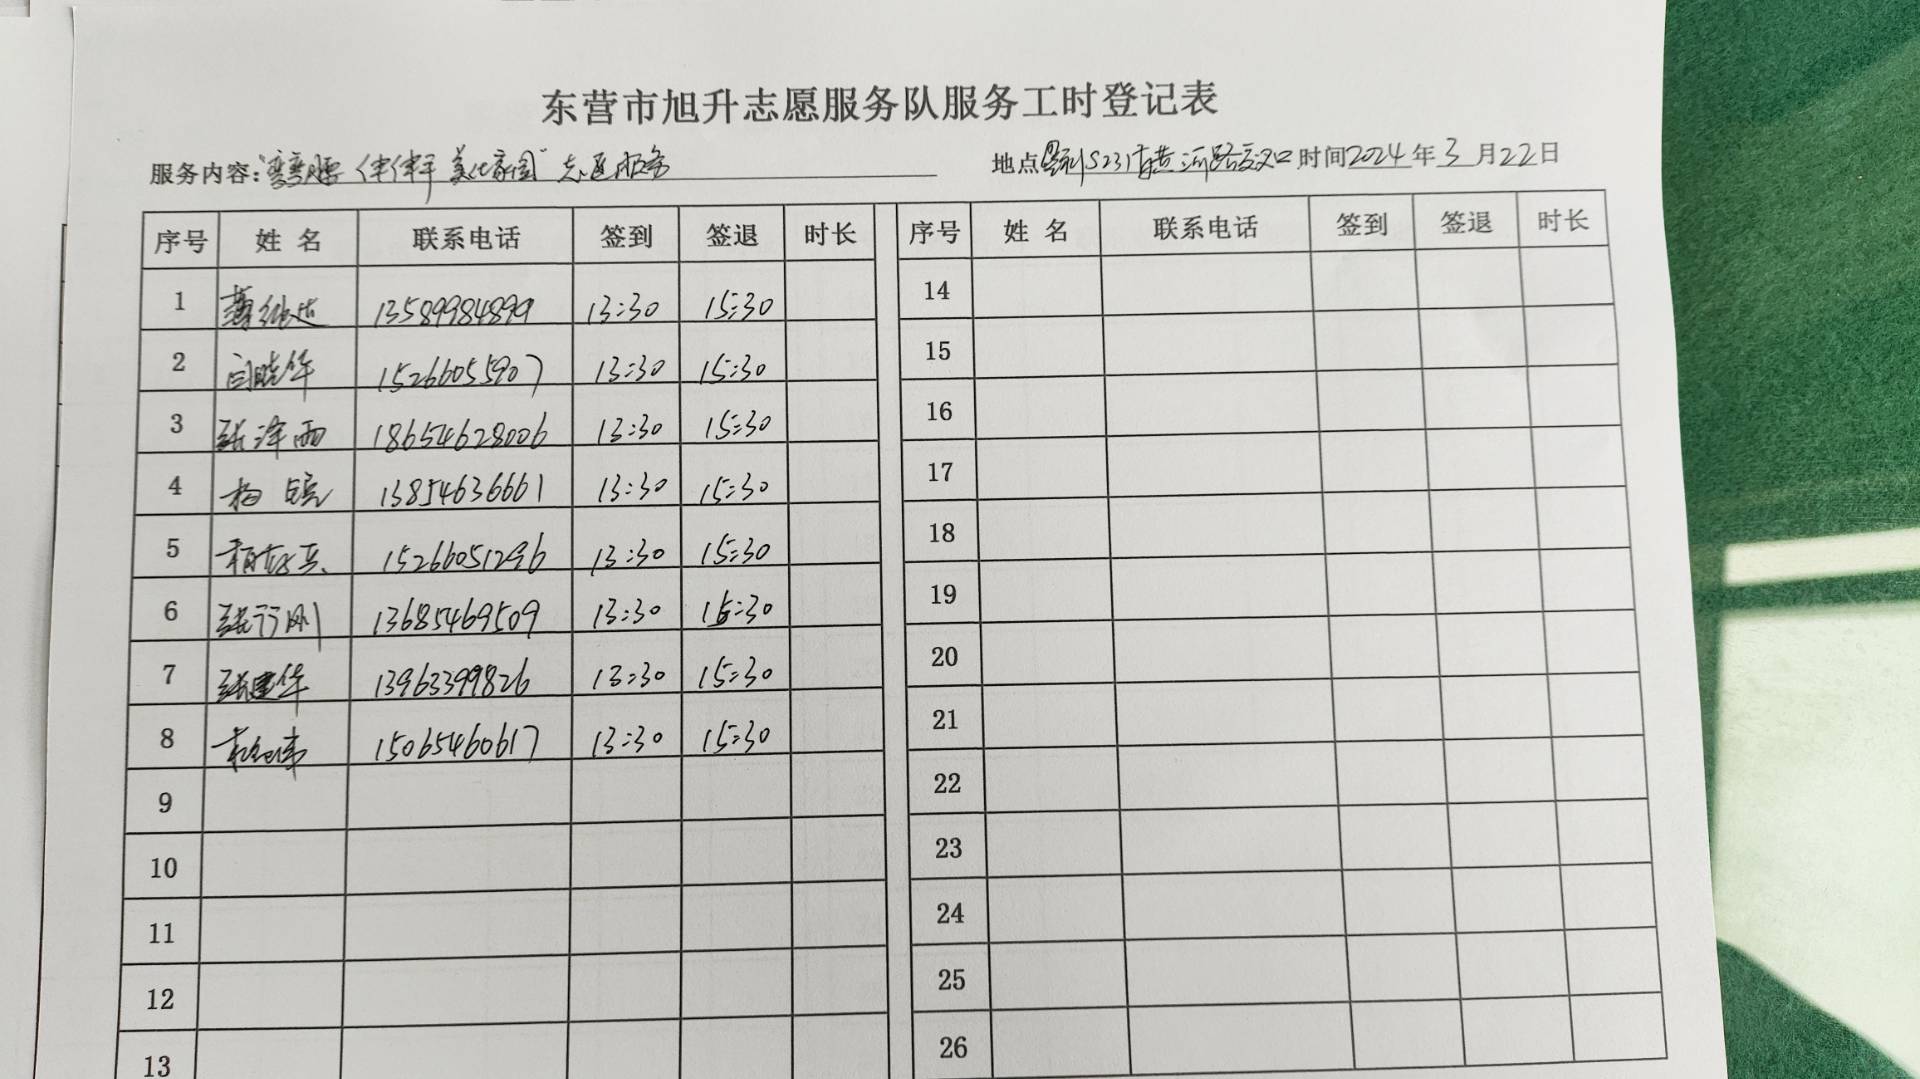 东营市旭升志愿服务队服务工时登记表
服务内容:"弯弯腰 伸伸手 美化家园"志愿服务 地点 垦利S231黄河路交叉口 时间2024年3月22日
序号 姓名 联系电话 签到 签退 时长 序号 姓名 联系电话 签到 签退 时长
1 13589984899 13:30 15:30 14
2 闫晓华 15266055907 13:30 15:30 15
3 张泽雨 18654628006 13:30 15:30 16
4 杨 13854636661 13:30 15:30 17
5 15266051296 13:30 15:30 18
6 张行刚 13685469509 13:30 15:30 19
7 张建华 13963399826 13:30 15:30 20
8 15065460617 13:30 15:30 21
9 22
10 23
11 24
12 25
13 26